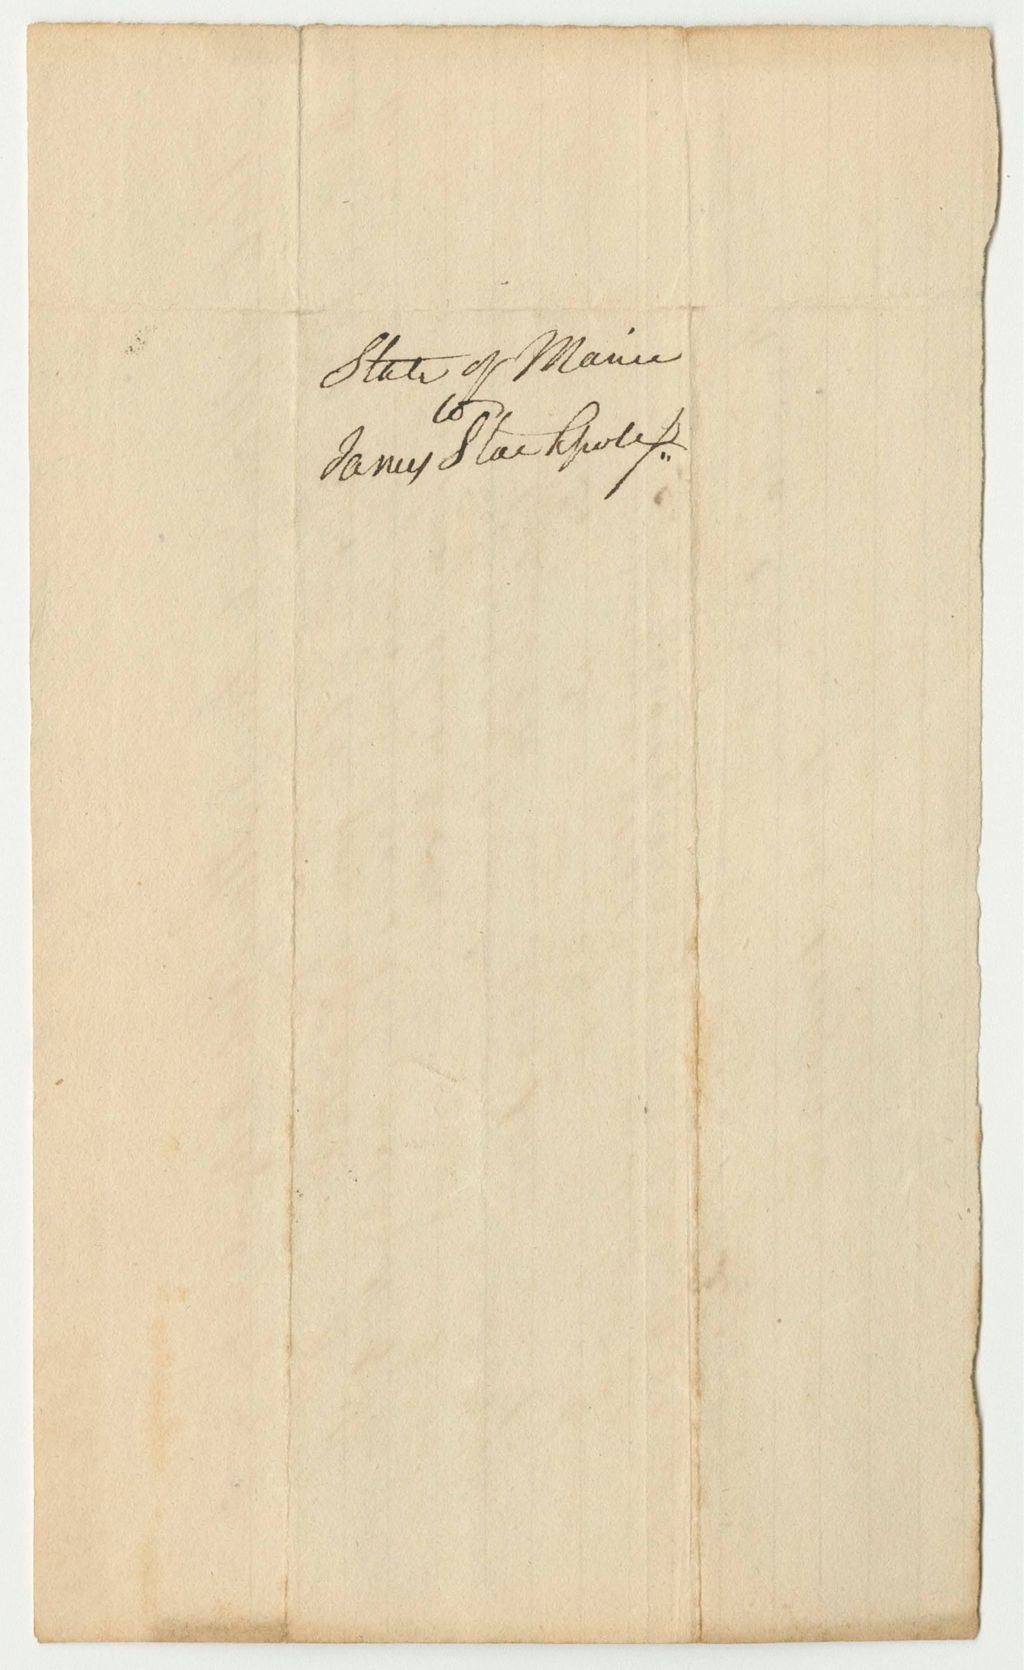 State of Maine
to
James Stackpole Jr.